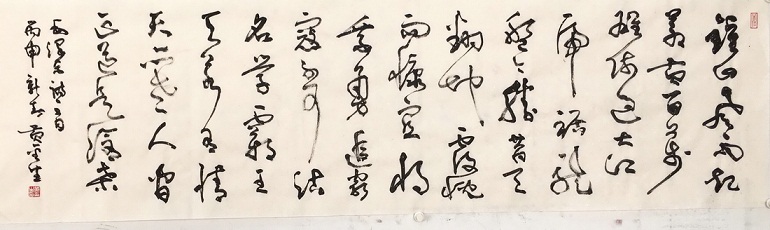 鍾山風雨起
蒼黄百万
雄師過大江
虎踞龍
盤今勝昔天
翻地覆慨
而慷宜將
剩勇追窮
寇不可沽
名学霸王
天若有情
天亦老人間
正道是滄桑
毛澤東詩一首
丙申新春